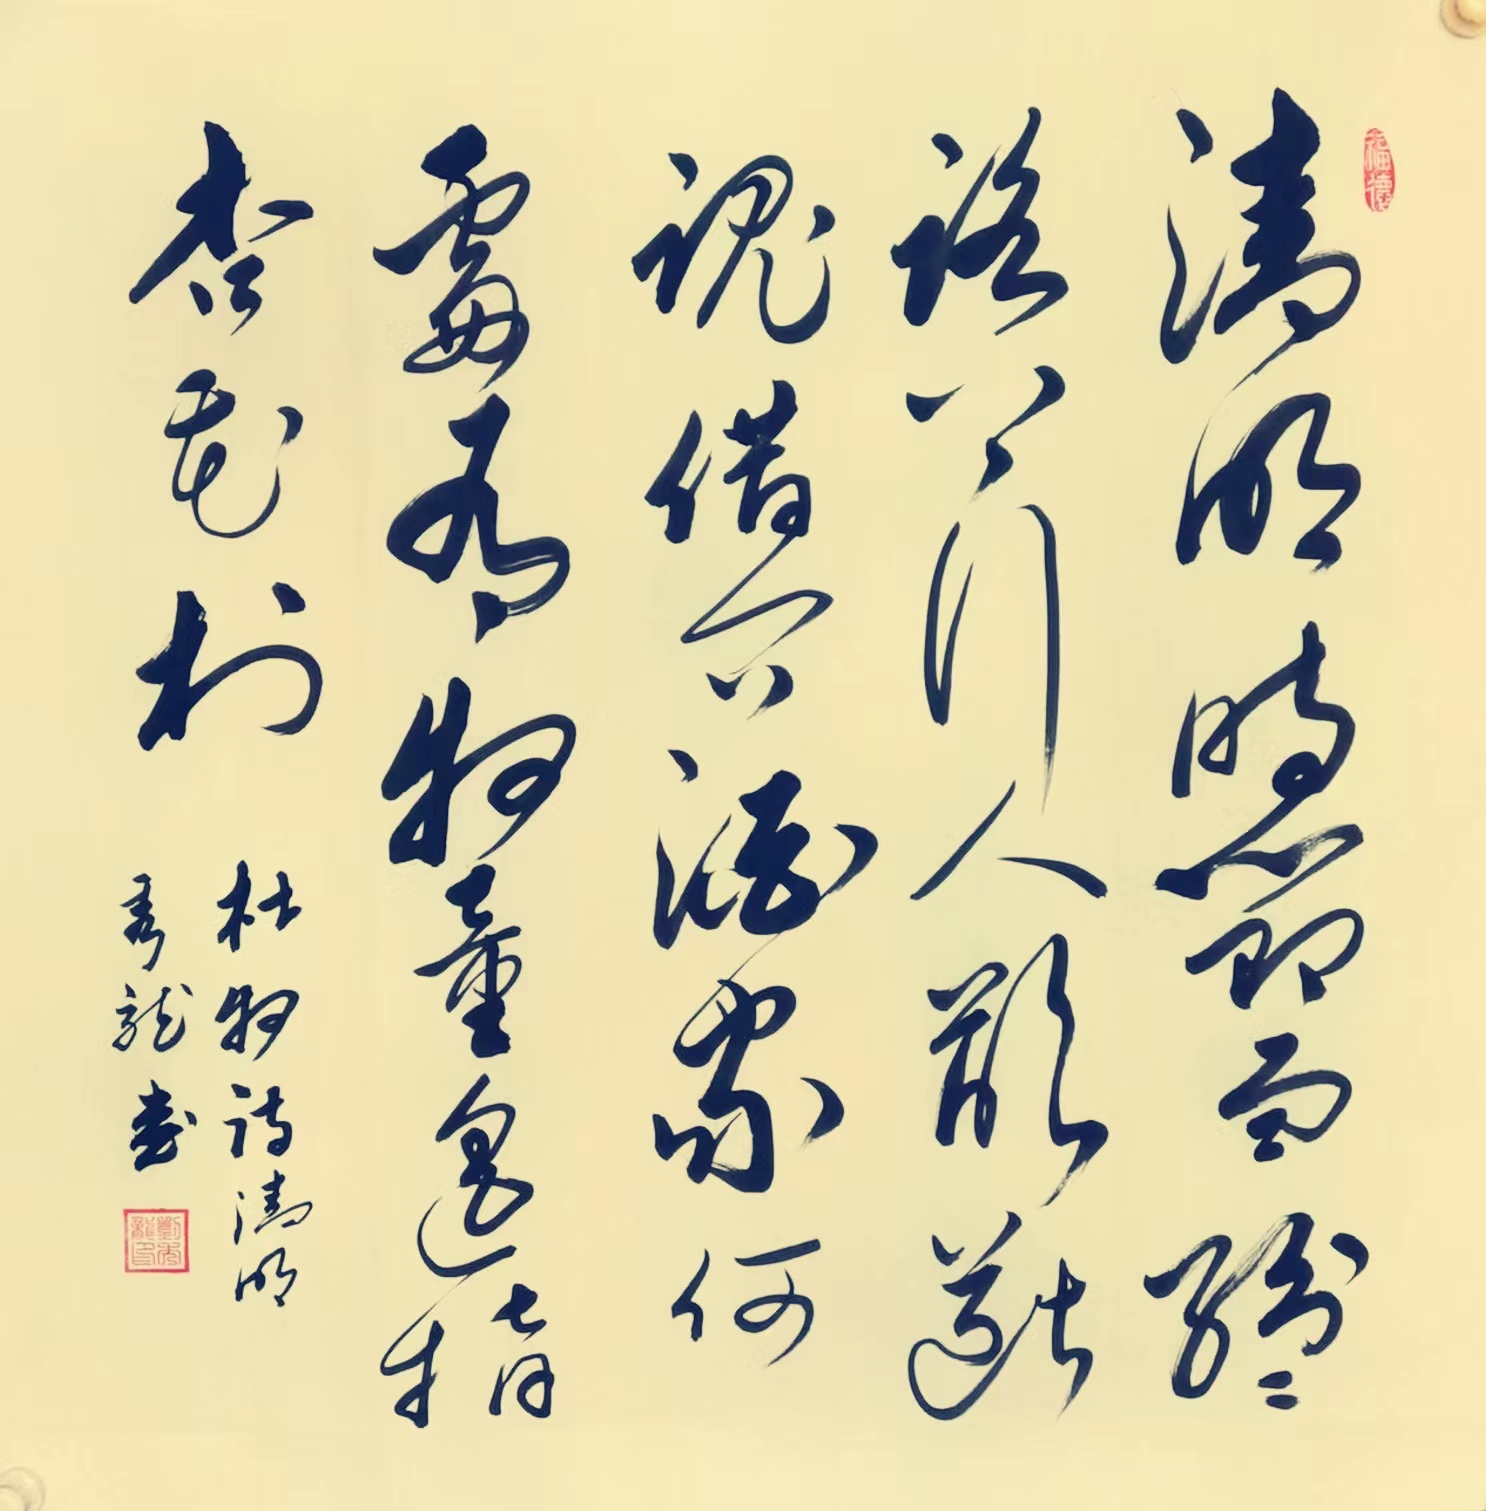 福德
清明時節雨紛〻
路上行人欲斷
魂借問酒家何
處有牧童遥指
杏花村
杜牧詩清明
秀龍書
劉秀龍印